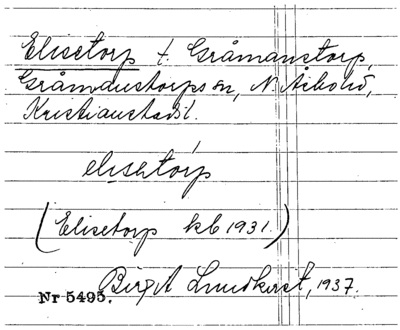 Elisetorp t. Gråmanstorp,
Gråmanstorps sn, N. Åsbo hd,
Kristianstads l.
elisetorp
(Elisetorp kb 1931.)
Birgit Lundkvist, 1937.
Nr 5495.